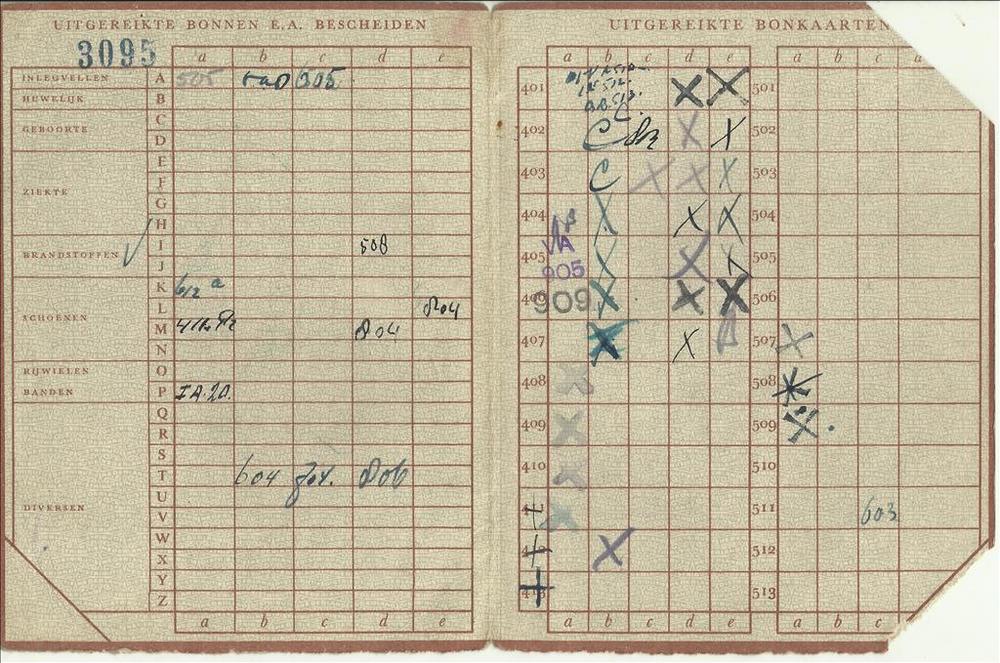 UITGEREIKTE BONNEN E.A. BESCHEIDEN
3095
a b c d e
INLEGVELLEN A 505 505
HUWELIJK B
C
GEBOORTE D
E
ZIEKTE F
G
H
BRANDSTOFFEN I 508
J
K 612 a
SCHOENEN L 804
M 804
N
RIJWIELEN O
BANDEN P
Q
R
S
T 604 806
U
DIVERSEN V
W
X
Y
Z
a b c d e
UITGEREIKTE BONKAARTEN
a b c d e a b c d
401 X X 501
402 C X X 502
403 C X X X 503
404 X X X 504
VA
405 X X X 505
905
406 X X X 506
909
407 X X 507 X
408 X 508 X
409 X 509 X
410 X 510
411 X 511 603
412 X 512
413 513
a b c d e a b c d